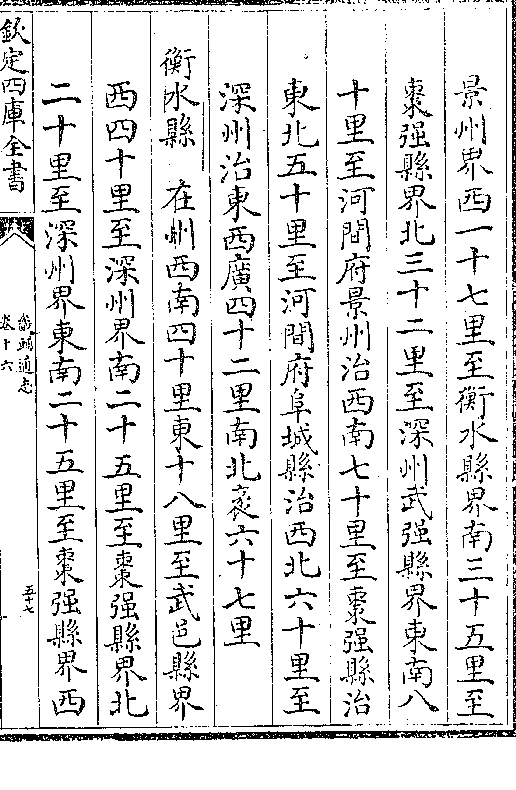 景州界西一十七里至衡水縣界南三十五里至
棗强縣界北三十二里至深州武强縣界東南八
十里至河間府景州治西南七十里至棗强縣治
東北五十里至河間府阜城縣治西北六十里至
深州治東西廣四十二里南北袤六十七里
衡水縣 在州西南四十里東十八里至武邑縣界
西四十里至深州界南二十五里至棗强縣界北
二十里至深州界東南二十五里至棗强縣界西
欽定四庫全書
畿輔通志
卷十六
五十七